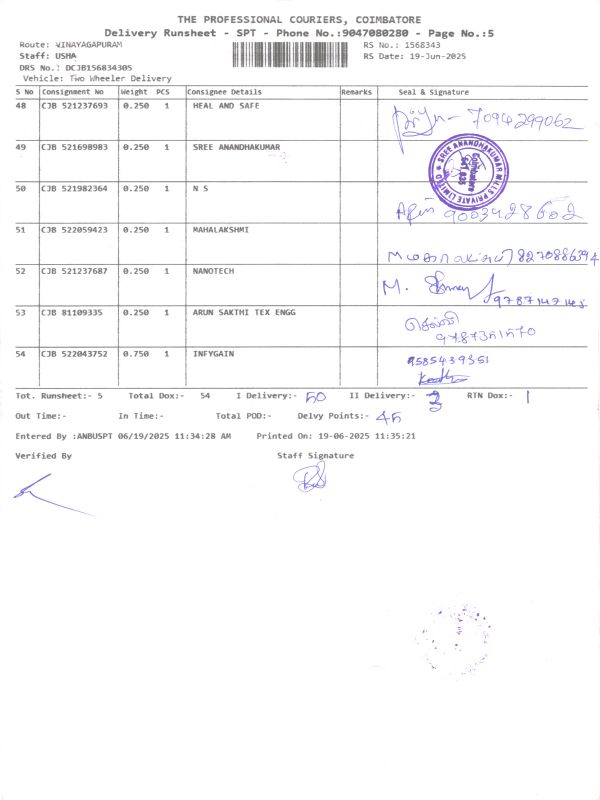 THE PROFESSIONAL COURIERS, COIMBATORE
Delivery Runsheet - SPT - Phone No.:9047080280 - Page No.:5
Route: VINAYAGAPURAM RS No.: 1568343
Staff: USHA RS Date: 19-Jun-2025
DRS No.: DCJB156834305
Vehicle: Two Wheeler Delivery
S No Consignment No Weight PCS Consignee Details Remarks Seal & Signature
48 CJB 521237693 0.250 1 HEAL AND SAFE 7094299062
49 CJB 521698983 0.250 1 SREE ANANDHAKUMAR
SREE ANANDHAKUMAR MILLS PRIVATE LIMITED
Coimbatore
641 035
50 CJB 521982364 0.250 1 N S 9003428602
51 CJB 522059423 0.250 1 MAHALAKSHMI 8270886394
52 CJB 521237687 0.250 1 NANOTECH M. 9787147145
53 CJB 81109335 0.250 1 ARUN SAKTHI TEX ENGG செல்வி
54 CJB 522043752 0.750 1 INFYGAIN 9585439351
Tot. Runsheet:- 5 Total Dox:- 54 I Delivery:- 50 II Delivery:- 3 RTN Dox:- 1
Out Time:- In Time:- Total POD:- Delvy Points:- 45
Entered By :ANBUSPT 06/19/2025 11:34:28 AM Printed On: 19-06-2025 11:35:21
Verified By Staff Signature